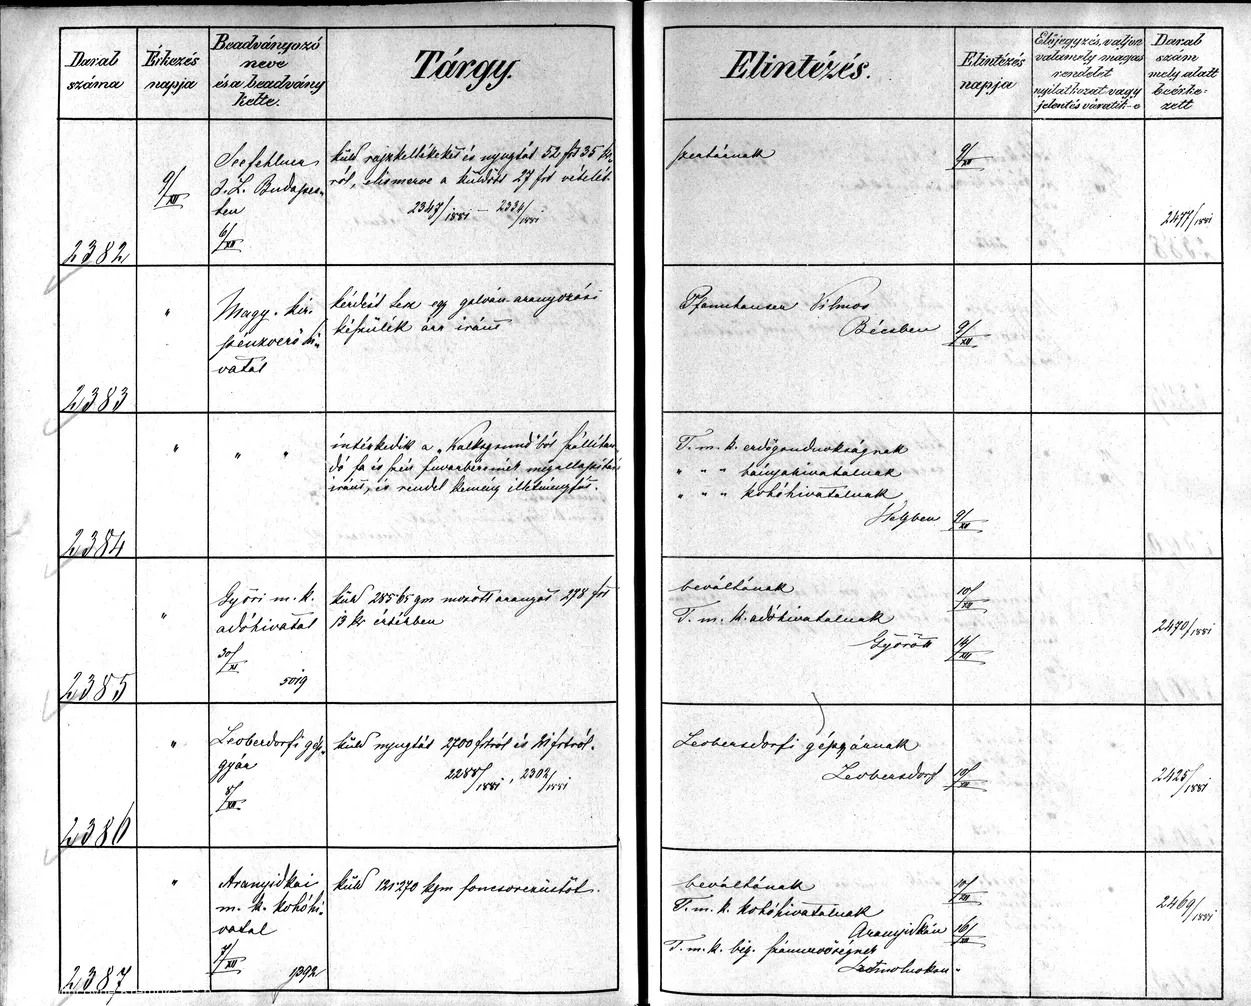 Darab száma
Érkezés napja
Beadványozó neve és a beadvány kelte.
Tárgy.
Elintézés.
Elintézés napja
Előjegyzés, valjon valamely magas rendelet nyilatkozat vagy jelentés váratik-e
Darab szám mely alatt beérkezett
2382
9/XII
Seefehlner
J. L. Budapes-
ten
6/XII
küld rajzkellékeket és nyugtát 52 frt 35 kr-
ról, elismerve a küldött 27 frt vételét.
2347/1881 – 2334/1881
szertárnak
9/XII
2477/1881
2383
"
Magy. kir.
pénzverő hi-
vatal
kérdést tesz egy galván-aranyozási
készülék ára iránt
Pfannhauser Vilmos
Bécsben
9/XII
2384
"
" "
intézkedik a „Kalksgrund"ból szállítan-
dó fa és szén fuvarbérének megállapítása
iránt, és rendel kemény illetményfát.
T. m. k. erdőgondnokságnak
" " " bányahivatalnak
" " " kohóhivatalnak
Helyben
9/XII
2385
"
Győri m. k.
adóhivatal
30/XI
5019
küld 285·65 gm mosott aranyat 278 frt
13 kr értékben
beváltónak
10/XII
T. m. k. adóhivatalnak
Győrött
14/XII
2470/1881
2386
"
Leobersdorfi gép-
gyár
8/XII
küld nyugtát 2700 frtról és 21 frtról.
2288/1881, 2302/1881
Leobersdorfi gépgyárnak
Leobersdorf
10/XII
2425/1881
2387
"
Aranyidkai
m. k. kohóhi-
vatal
7/XII
1392
küld 121·270 kgm foncsorezüstöt.
beváltónak
10/XII
T. m. k. kohóhivatalnak
Aranyidkán
16/XII
T. m. k. big. számvevőségnek
Szomolnokon.
2469/1881